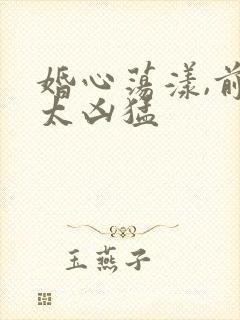 婚心荡漾,前
太凶猛
玉燕子